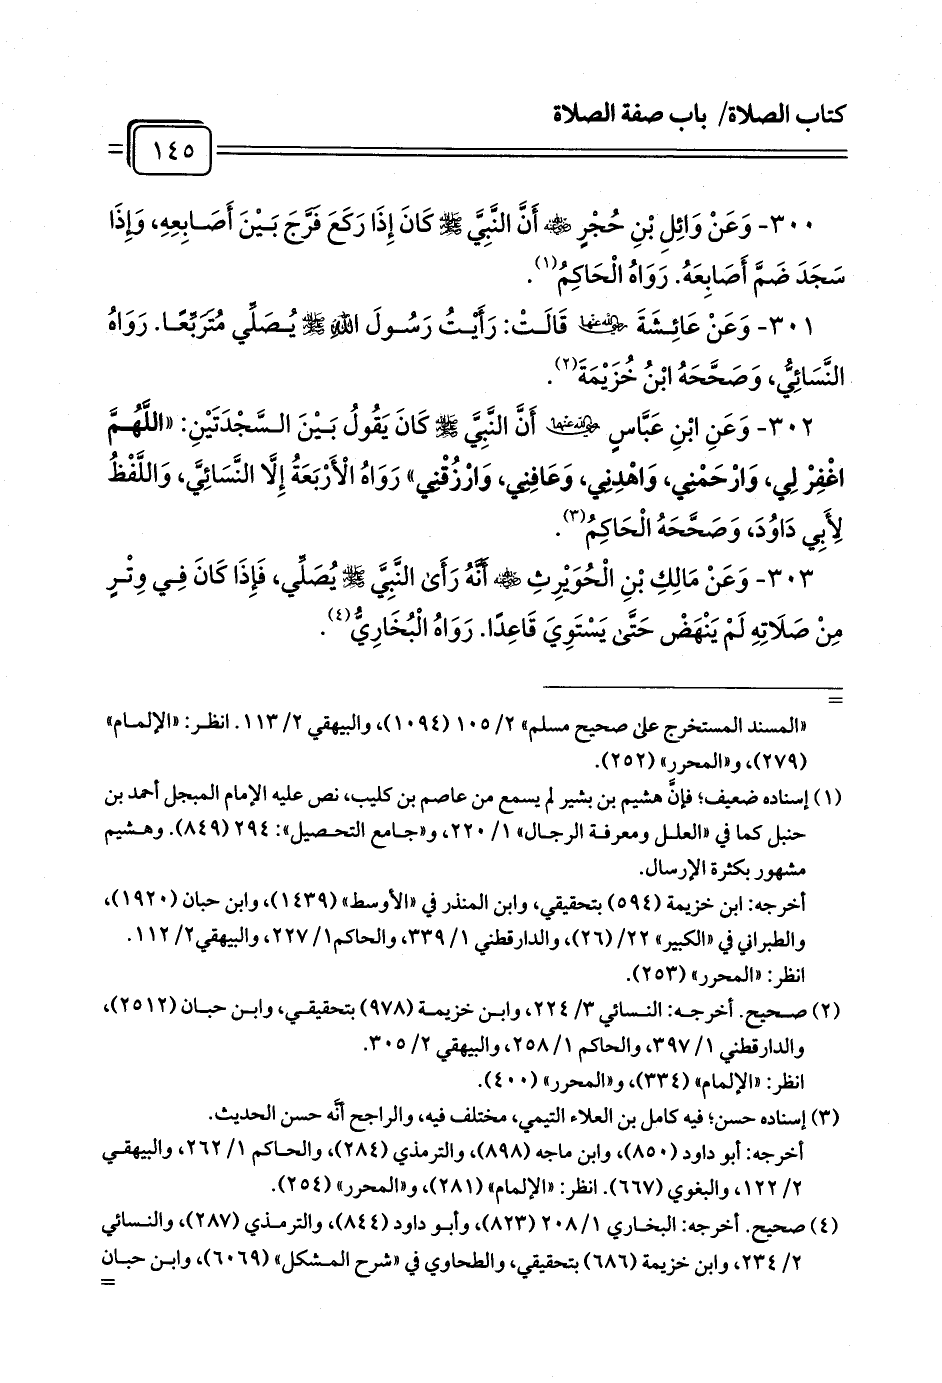 كتاب الصلاة/ باب صفة الصلاة
١٤٥
٣٠٠- وَعَنْ وَائِلِ بْنِ حُجْرٍ رضي الله عنه أَنَّ النَّبِيَّ ﷺ كَانَ إِذَا رَكَعَ فَرَّجَ بَيْنَ أَصَابِعِهِ، وَإِذَا
سَجَدَ ضَمَّ أَصَابِعَهُ. رَوَاهُ الْحَاكِمُ(١).
٣٠١- وَعَنْ عَائِشَةَ رضي الله عنها قَالَتْ: رَأَيْتُ رَسُولَ اللهِ ﷺ يُصَلِّي مُتَرَبِّعًا. رَوَاهُ
النَّسَائِيُّ، وَصَحَّحَهُ ابْنُ خُزَيْمَةَ(٢).
٣٠٢- وَعَنِ ابْنِ عَبَّاسٍ رضي الله عنهما أَنَّ النَّبِيَّ ﷺ كَانَ يَقُولُ بَيْنَ السَّجْدَتَيْنِ: «اللَّهُمَّ
اغْفِرْ لِي، وَارْحَمْنِي، وَاهْدِنِي، وَعَافِنِي، وَارْزُقْنِي» رَوَاهُ الْأَرْبَعَةُ إِلَّا النَّسَائِيَّ، وَاللَّفْظُ
لِأَبِي دَاوُدَ، وَصَحَّحَهُ الْحَاكِمُ(٣).
٣٠٣- وَعَنْ مَالِكِ بْنِ الْحُوَيْرِثِ رضي الله عنه أَنَّهُ رَأَى النَّبِيَّ ﷺ يُصَلِّي، فَإِذَا كَانَ فِي وِتْرٍ
مِنْ صَلَاتِهِ لَمْ يَنْهَضْ حَتَّى يَسْتَوِيَ قَاعِدًا. رَوَاهُ الْبُخَارِيُّ(٤).
=
«المسند المستخرج على صحيح مسلم» ٢/ ١٠٥ (١٠٩٤)، والبيهقي ٢/ ١١٣. انظر: «الإلمام»
(٢٧٩)، و«المحرر» (٢٥٢).
(١) إسناده ضعيف؛ فإنَّ هشيم بن بشير لم يسمع من عاصم بن كليب، نص عليه الإمام المبجل أحمد بن
حنبل كما في «العلل ومعرفة الرجال» ١/ ٢٢٠، و«جامع التحصيل»: ٢٩٤ (٨٤٩). وهشيم
مشهور بكثرة الإرسال.
أخرجه: ابن خزيمة (٥٩٤) بتحقيقي، وابن المنذر في «الأوسط» (١٤٣٩)، وابن حبان (١٩٢٠)،
والطبراني في «الكبير» ٢٢/ (٢٦)، والدارقطني ١/ ٣٣٩، والحاكم١/ ٢٢٧، والبيهقي٢/ ١١٢.
انظر: «المحرر» (٢٥٣).
(٢) صحيح. أخرجه: النسائي ٣/ ٢٢٤، وابن خزيمة (٩٧٨) بتحقيقي، وابن حبان (٢٥١٢)،
والدارقطني ١/ ٣٩٧، والحاكم ١/ ٢٥٨، والبيهقي ٢/ ٣٠٥.
انظر: «الإلمام» (٣٣٤)، و«المحرر» (٤٠٠).
(٣) إسناده حسن؛ فيه كامل بن العلاء التيمي، مختلف فيه، والراجح أنَّه حسن الحديث.
أخرجه: أبو داود (٨٥٠)، وابن ماجه (٨٩٨)، والترمذي (٢٨٤)، والحاكم ١/ ٢٦٢، والبيهقي
٢/ ١٢٢، والبغوي (٦٦٧). انظر: «الإلمام» (٢٨١)، و«المحرر» (٢٥٤).
(٤) صحيح. أخرجه: البخاري ١/ ٢٠٨ (٨٢٣)، وأبو داود (٨٤٤)، والترمذي (٢٨٧)، والنسائي
٢/ ٢٣٤، وابن خزيمة (٦٨٦) بتحقيقي، والطحاوي في «شرح المشكل» (٦٠٦٩)، وابن حبان
=